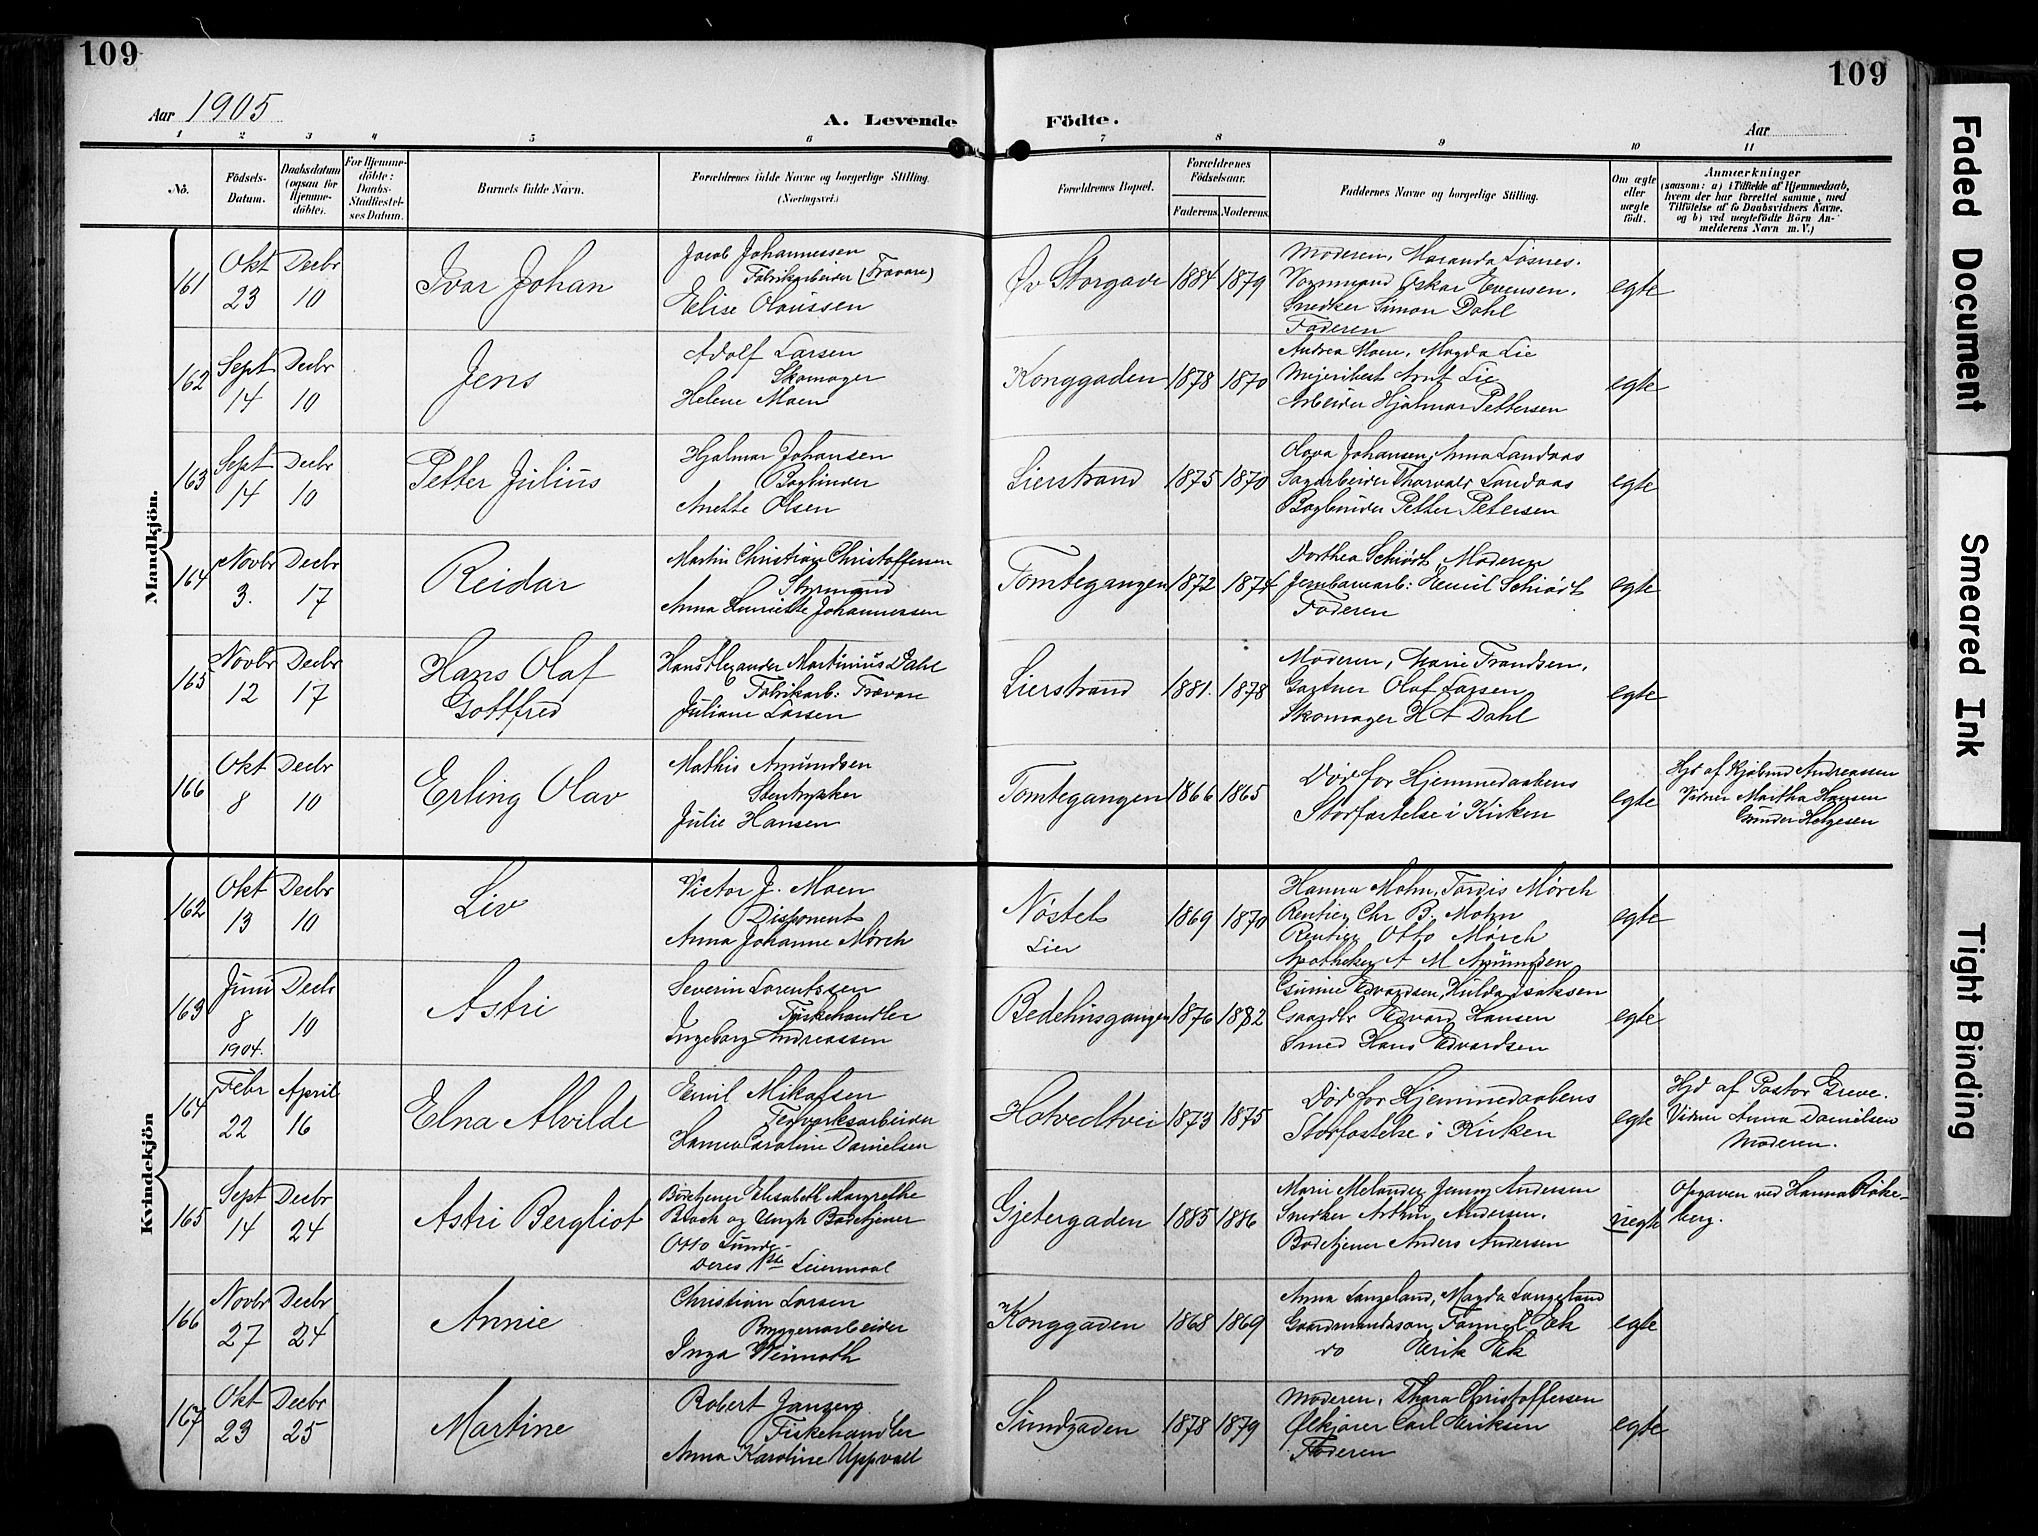 109
109
Aar 1905
A. Levende Födte.
Aar
1 2 3 4 5 6 7 8 9 10 11
No.
Födsels-Datum.
Daabsdatum (ogsaa for Hjemme-döbte).
For Hjemme-döbte: Daabs-Stadfæstel-ses Datum.
Barnets fulde Navn.
Forældrenes fulde Navne og borgerlige Stilling.
(Næringsvei.)
Forældrenes Bopæl.
Forældrenes Födselsaar.
Faderens. Moderens.
Faddernes Navne og borgerlige Stilling.
Om ægte eller uægte født.
Anmærkninger
(saasom: a) i Tilfælde af Hjemmedaab,
hvem der har forrettet samme, med
Tilföielse af to Daabsvidners Navne,
og b) ved uægtefödte Börn An-
melderens Navn m. V.)
Mandkjön.
161
Okt 23
Decbr 10
Ivar Johan
Jacob Johannessen
Fabrikarbeider (Trævare)
Elise Olaussen
Øv Storgade
1884 1879
Moderen, Haranda Losnes.
Vognmand Oskar Evensen.
Snedker Simon Dahl
Faderen
egte
162
Sept 14
Decbr 10
Jens
Adolf Larsen
Skomager
Helene Moen
Konggaden
1878 1870
Andrea Moen, Magda Lie
Meieribest Arnt Lie
Arbeider Hjalmar Pettersen
egte
163
Sept 14
Decbr 10
Petter Julius
Hjalmar Johansen
Bogbinder
Anette Olsen
Lierstrand
1875 1870
Olava Johansen, Anna Landaas
Sagarbeider Thorvald Landaas
Bogbinder Petter Petersen
egte
164
Novbr 3.
Decbr 17
Reidar
Martin Christian Christoffersen
Styrmand
Anna Henriette Johannessen
Tomtegangen
1872 1874
Dorthea Schiødt, Moderen
Jernbanearb: Emil Schiødt
Faderen
egte
165
Novbr 12
Decbr 17
Hans Olaf
Gottfred
Hans Alexander Martinius Dahl
Fabrikarb: Trævare
Juliane Larsen
Lierstrand
1881. 1878
Moderen, Marie Trandsen,
Gartner Olaf Larsen
Skomager H A Dahl
egte
166
Okt 8
Decbr 10
Erling Olav
Mathis Amundsen
Stentrykker
Julie Hansen
Tomtegangen
1866 1865
Død før Hjemmedaabens
Stadfæstelse i Kirken
egte
Hjd af Kjøbmd Andreassen
Vidner Martha Hansen
Gunder Helgesen
Kvindekjön
162
Okt 13
Decbr 10
Liv
Victor J. Moen
Disponent
Anna Johanne Mørch
Nøsted
Lier
1869 1870
Hanna Mohn, Tordis Mørch
Rentier Chr B. Mohn
Rentier Otto Mørch
Apotheker A M Amundsen
egte
163
Juni 8 1904.
Decbr 10
Astri
Severin Lorentssen
Fiskehandler
Ingeborg Andreassen
Bedehusgangen
1876 1882
Gunnie Edvardsen, Hulda Isaksen
Gaardbr Edvard Hansen
Smed Hans Edvardsen
egte
164
Febr 22
April 16
Elna Alvilde
Emil Mikalsen
Teglverksarbeider
Hanna Caroline Danielsen
Hotvedtvei
1873 1875
Død før Hjemmedaabens
Stadfæstelse i Kirken
egte
Hjd af Pastor Greve.
Vidner Anna Danielsen
Moderen.
165
Sept 14
Decbr 24
Astri Bergliot
Bodetjener Elisabeth Margrethe
Brock og Ungk Bodetjener
Otto Lunde
Deres 1ste Leiermaal
Gjetergaden
1885 1886
Marie Melander, Jenny Andersen
Snedker Arthur Andersen.
Bodetjener Anders Andersen
uegte
Opgaven ved Hanna Røke-
berg.
166
Novbr 27
Decbr 24
Annie
Christian Larsen
Bryggeriarbeider
Inga Weimoth
Konggaden
1868 1869
Anna Langeland, Magda Langeland
Gaardmandssøn Ek
do Erik Ek
egte
167
Okt 23
Decbr 25
Martine
Robert Jansen
Fiskehandler
Anna Karoline Uppvall
Sundgaden
1878 1879
Moderen, Thora Christoffersen
Ølkjører Carl Eriksen
Faderen
egte
Faded Document
Smeared Ink
Tight Binding